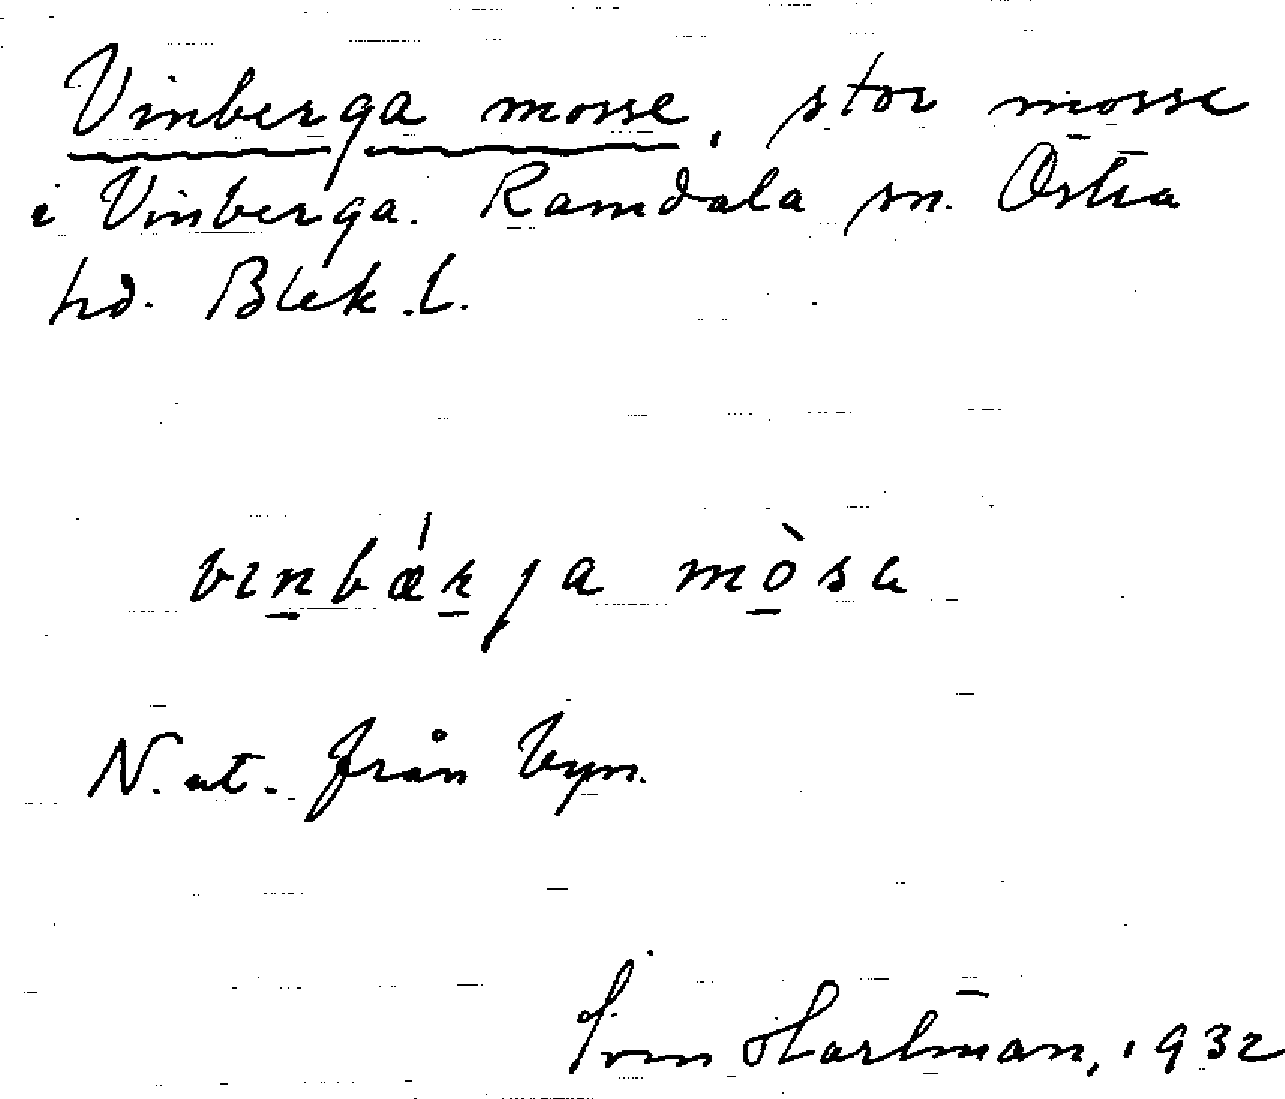 Vinberga mosse, stor mosse
i Vinberga. Ramdala sn. Östra
hd. Blek. l.
vinbǽrja mòsa
N. ut. från byn.
Sven Hartman, 1932